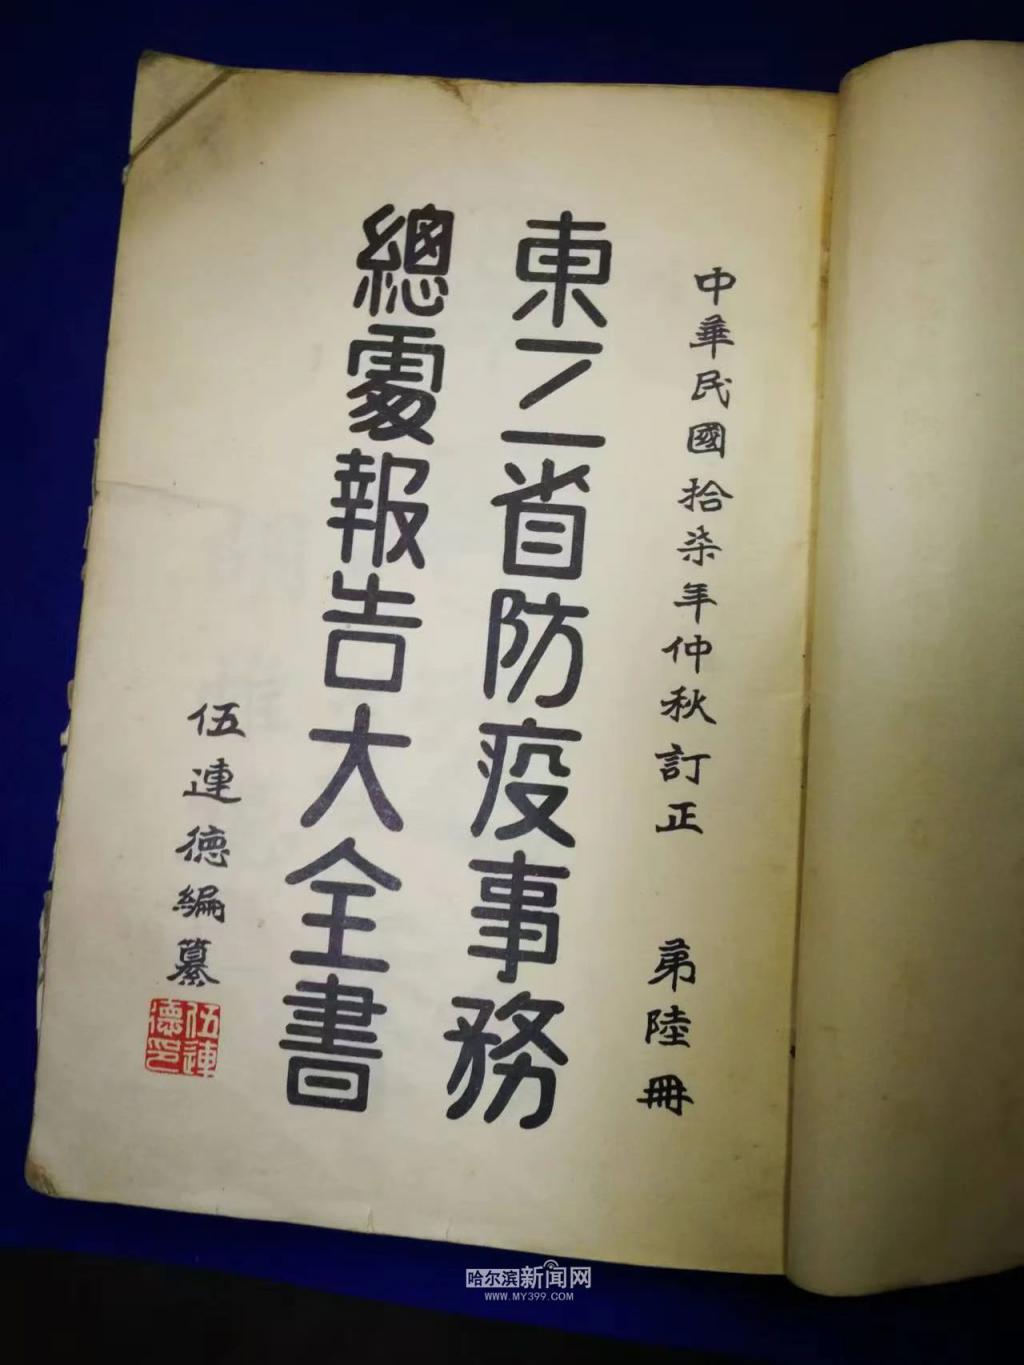 中華民國拾柒年仲秋訂正　弟陸冊
東三省防疫事務
總處報告大全書
伍連德編纂
伍連
德印
哈尔滨新闻网
WWW.MY399.COM